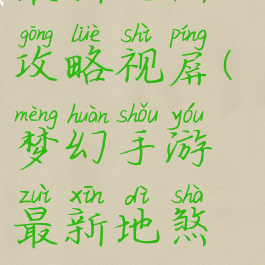 gōng lüè shì píng
攻略视屏(
mèng huàn shǒu yóu
梦幻手游
zuì xīn dì shà
最新地煞